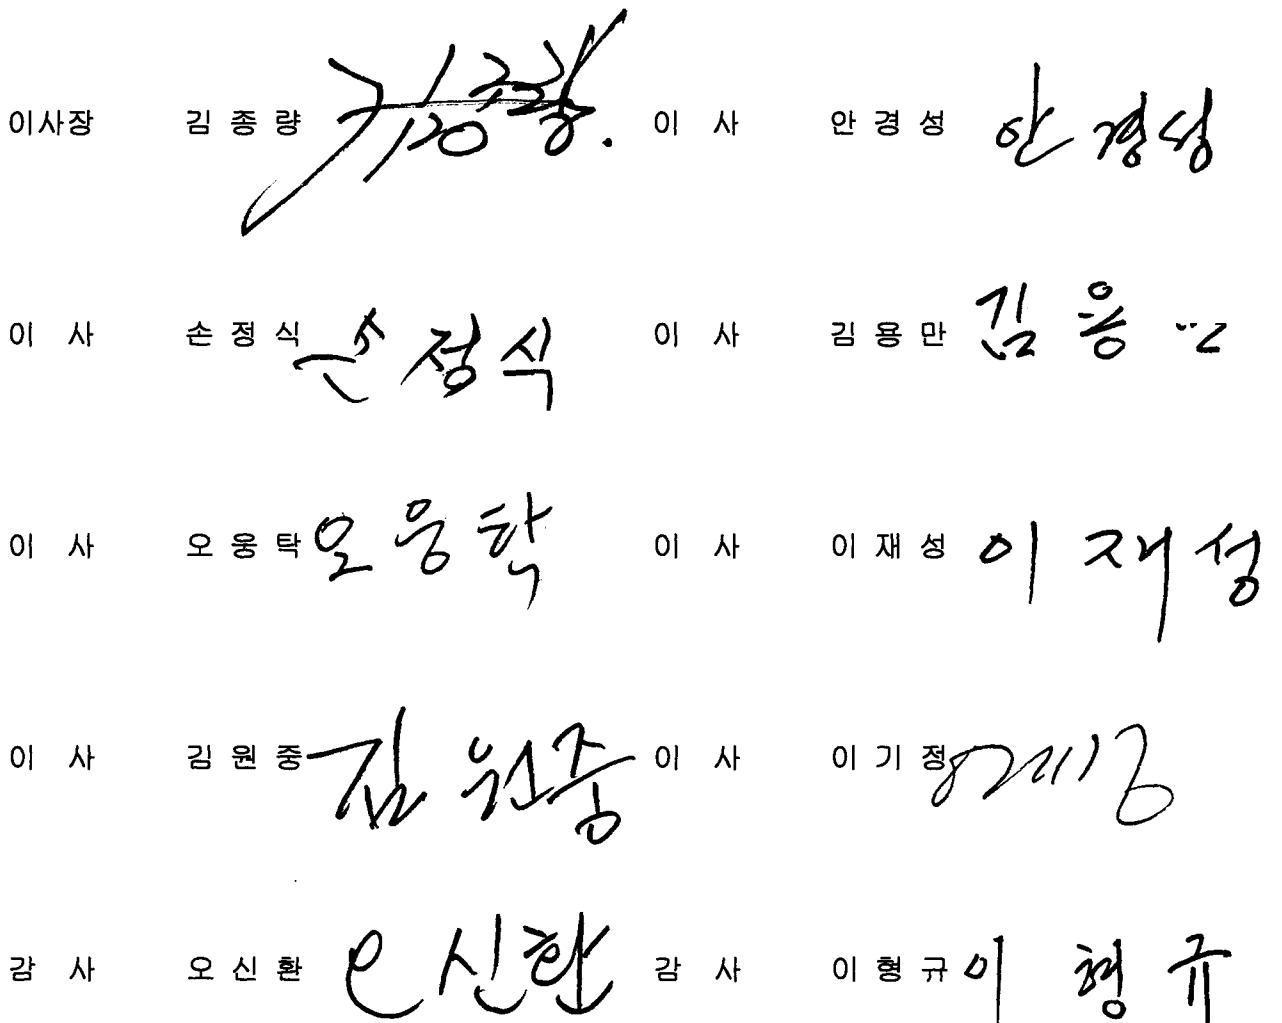 이사장 김종량 이 사 안경성 안경성
이 사 손정식 손정식 이 사 김용만 김용
이 사 오웅탁 오웅탁 이 사 이재성 이재성
이 사 김원중 김원중 이 사 이기정
감 사 오신환 오신환 감 사 이형규 이형규